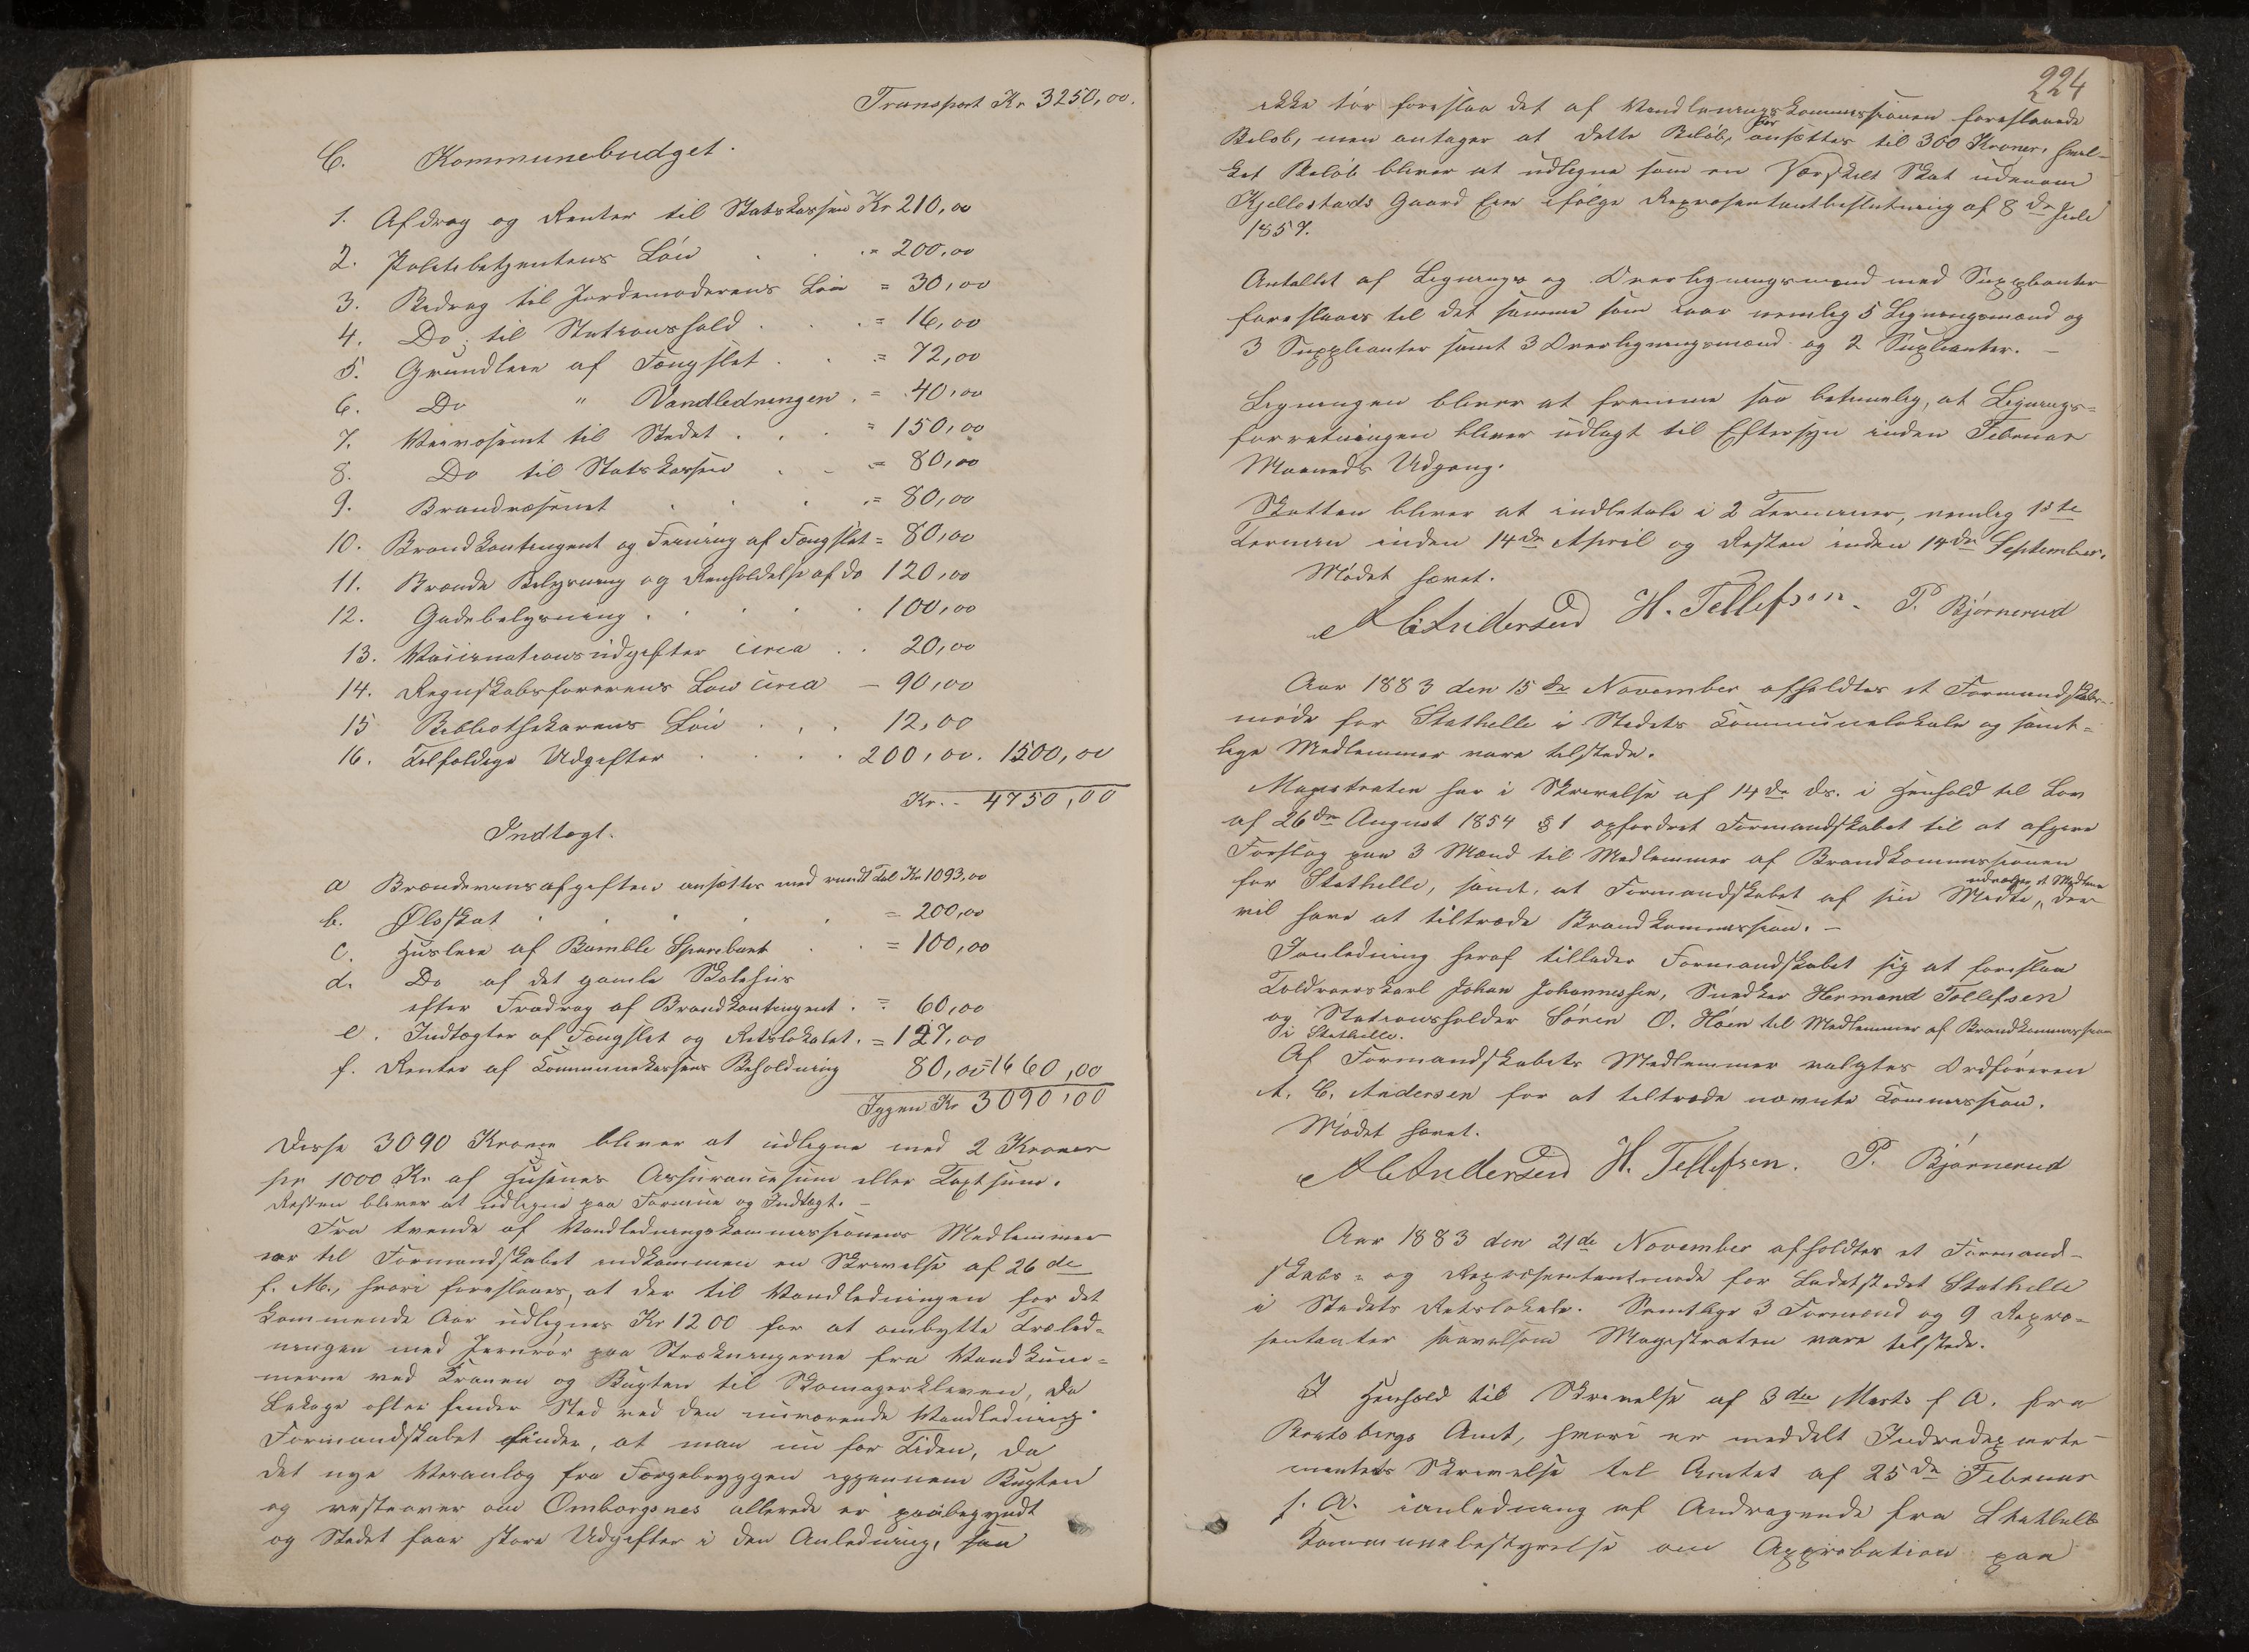 Transport Kr 3250,00.
C. Kommunebudget.
1. Afdrag og Renter til Statskassen Kr 210,00
2. Politibetjentens Løn . . = 200,00
3. Bidrag til Jordemoderens Løn = 30,00
4. Do. til Stationshold . . . = 16,00
5. Grundleie af Fængslet . . = 72,00
6. Do " Vandledningen . = 40,00
7. Veivæsenet til Stedet . . . = 150,00
8. Do til Statskassen . . = 80,00
9. Brandvæsenet . . . = 80,00
10. Brandkontingent og Feining af Fængslet = 80,00
11. Brænde Belysning og Renholdelse af do 120,00
12. Gadebelysning . . . . 100,00
13. Vaccinationsudgifter circa . . 20,00
14. Regnskabsførerens Løn circa – 90,00
15 Bibliothekarens Løn . . . 12,00
16. Tilfældige Udgifter . . . . 200,00. 1500,00
Kr. - 4750,00
Indtægt.
a Brændevinsafgiften ansættes med rundt Tal Kr 1093,00
b. Ølskat . . . . = 200,00
c. Husleie af Bamble Sparebank . . = 100,00
d. Do af det gamle Skolehus
efter Fradrag af Brandkontingent . = 60,00
e. Indtægter af Fængslet og Retslokalet. = 127,00
f. Renter af Kommunekassens Beholdning 80,00 = 1660,00
Igjen Kr 3090,00
Disse 3090 Kroner bliver at udligne med 2 Kroner
pr 1000 Kr af Husenes Assurancesum eller Taxtsum.
Resten bliver at udligne paa Formue og Indtægt. –
Fra tvende af Vandledningskommissionens Medlemmer
var til Formandskabet indkommen en Skrivelse af 26de
f. M., hvori foreslaaes, at der til Vandledningen for det
kommende Aar udlignes Kr 1200 for at ombytte Træled-
ningen med Jernrør paa Strækningerne fra Vandkum-
merne ved Kranen og Bugten til Skomagerkleven, da
Lekage oftere finder Sted ved den nuværende Vandledning.
Formandskabet finder, at man nu for Tiden, da
det nye Veianlæg fra Færgebryggen igjennem Bugten
og vestover om Omborgsnes allerede er paabegyndt
og Stedet faar store Udgifter i den Anledning, saa
224
ikke tør foreslaa det af Vandledningskommissionen foreslaaede
Beløb, men antager at dette Beløb bør ansættes til 300 Kroner, hvil-
ket Beløb bliver at udligne som en særskilt Skat udenom
Kjellestads Gaard Eier ifølge Repræsentantbeslutning af 8de Juli
1857.
Antallet af Lignings og Overligningsmænd med Suppleanter
foreslaaes til det samme som iaar nemlig 5 Ligningsmænd og
3 Suppleanter samt 3 Overligningsmænd og 2 Supleanter. –
Ligningen bliver at fremme saa betimelig, at Lignings-
forretningen bliver udlagt til Eftersyn inden Februar
Maaneds Udgang.
Skatten bliver at indbetale i 2 Terminer, nemlig 1ste
Termin inden 14de April og Resten inden 14de September.
Mødet hævet.
A C Andersen H. Tellefsen. P. Bjørnerud
Aar 1883 den 15de November afholdtes et Formandskabs-
møde for Stathelle i Stedets Kommunelokale og samt-
lige Medlemmer vare tilstede.
Magistraten har i Skrivelse af 14de ds. i Henhold til Lov
af 26de August 1854 § 1 opfordret Formandskabet til at afgive
Forslag paa 3 Mænd til Medlemmer af Brandkommissionen
for Stathelle, samt, at Formandskabet af sin Midte udvælger et Medlem der
vil have at tiltræde Brandkommission. –
I Anledning heraf tillader Formandskabet sig at foreslaa
Toldroerskarl Johan Johannessen, Snedker Hermand Tollefsen
og Stationsholder Søren O. Höen til Medlemmer af Brandkommission
i Stathelle.
Af Formandskabets Medlemmer valgtes Ordføreren
A. C. Andersen for at tiltræde nævnte Kommission.
Mødet hævet.
A C Andersen H. Tellefsen. P. Bjørnerud
Aar 1883 den 21de November afholdtes et Formand-
skabs- og Repræsentantmøde for Ladestedet Stathelle
i Stedets Retslokale. Samtlige 3 Formænd og 9 Repræ-
sentanter saavelsom Magistraten vare tilstede.
I Henhold til Skrivelse af 3die Marts f A. fra
Bratsbergs Amt, hvori er meddelt Indredeparte-
mentets Skrivelse til Amtet af 25de Februar
s. A. ianledning af Andragende fra Stathelle
Kommunebestyrelse om Approbation paa